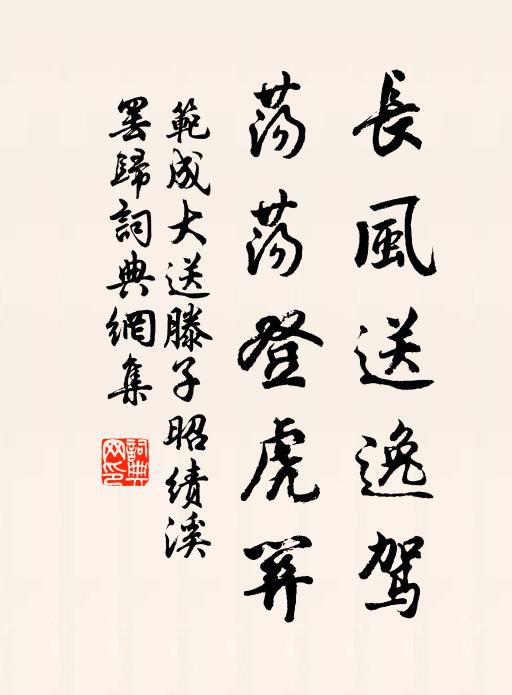 長風送逸駕
蕩蕩登虎關
範成大送滕子昭績溪
罷歸詞典網集
詞典網印